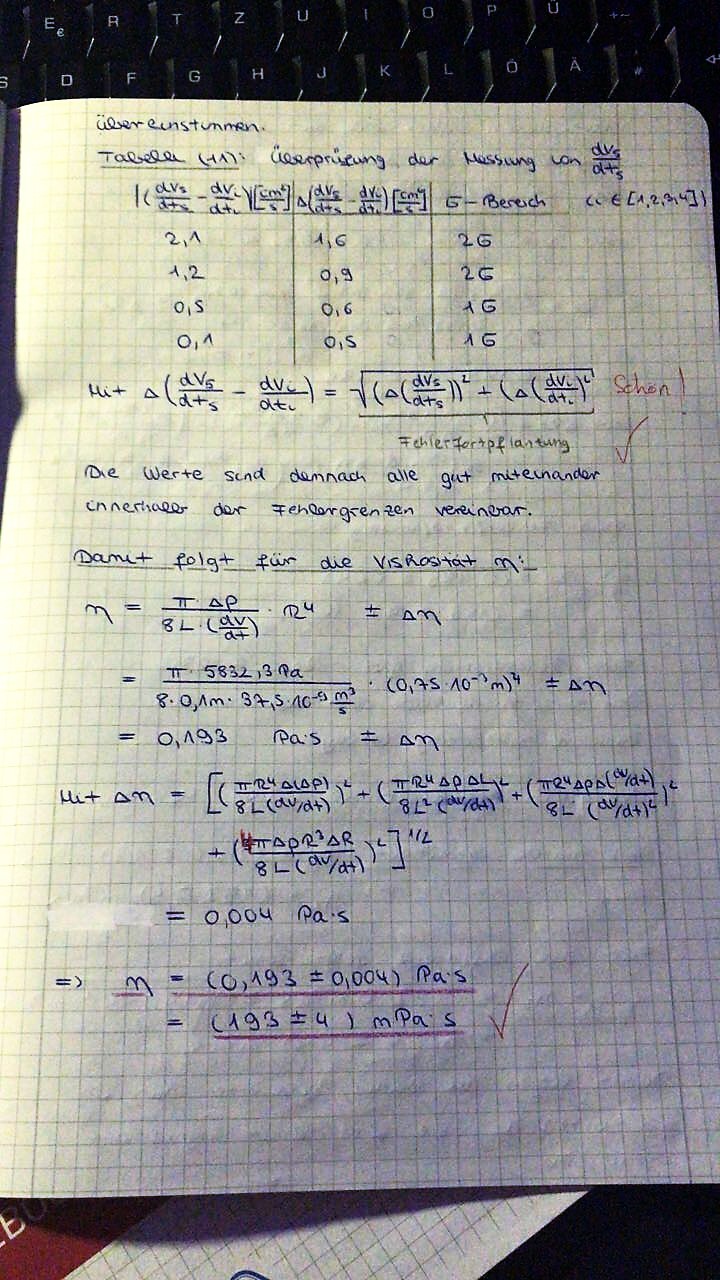 E € R T Z U I O P Ü +~
S D F G H J K L Ö Ä #
übereinstimmen.
Tabelle (11): Überprüfung der Messung von dV₅/dt₅
|(dV₅/dt₅ - dVᵢ/dtᵢ)|[cm³/s] Δ(dV₅/dt₅ - dVᵢ/dtᵢ)[cm³/s] σ-Bereich (i ∈ [1,2,3,4])
2,1 1,6 2σ
1,2 0,9 2σ
0,5 0,6 1σ
0,1 0,5 1σ
Mit Δ(dV₅/dt₅ - dVᵢ/dtᵢ) = √((Δ(dV₅/dt₅))² + (Δ(dVᵢ/dtᵢ)²) Schön! ✓
Fehlerfortpflantung
Die Werte sind demnach alle gut miteinander
innerhalb der Fehlergrenzen vereinbar.
Damit folgt für die Viskosität η:
η = π·Δp / 8L·(dV/dt) · R⁴ ± Δη
= π·5832,3Pa / 8·0,1m·37,5·10⁻⁹ m³/s · (0,75·10⁻³m)⁴ ± Δη
= 0,193 Pa·s ± Δη
Mit Δη = [(πR⁴Δ(Δp) / 8L(dV/dt))² + (πR⁴ΔpΔL / 8L²(dV/dt))² + (πR⁴ΔpΔ(dV/dt) / 8L (dV/dt)²)²
+ (4πΔpR³ΔR / 8L(dV/dt))²]^1/2
= 0,004 Pa·s
=> η = (0,193 ± 0,004) Pa·s
= (193 ± 4) mPa·s ✓